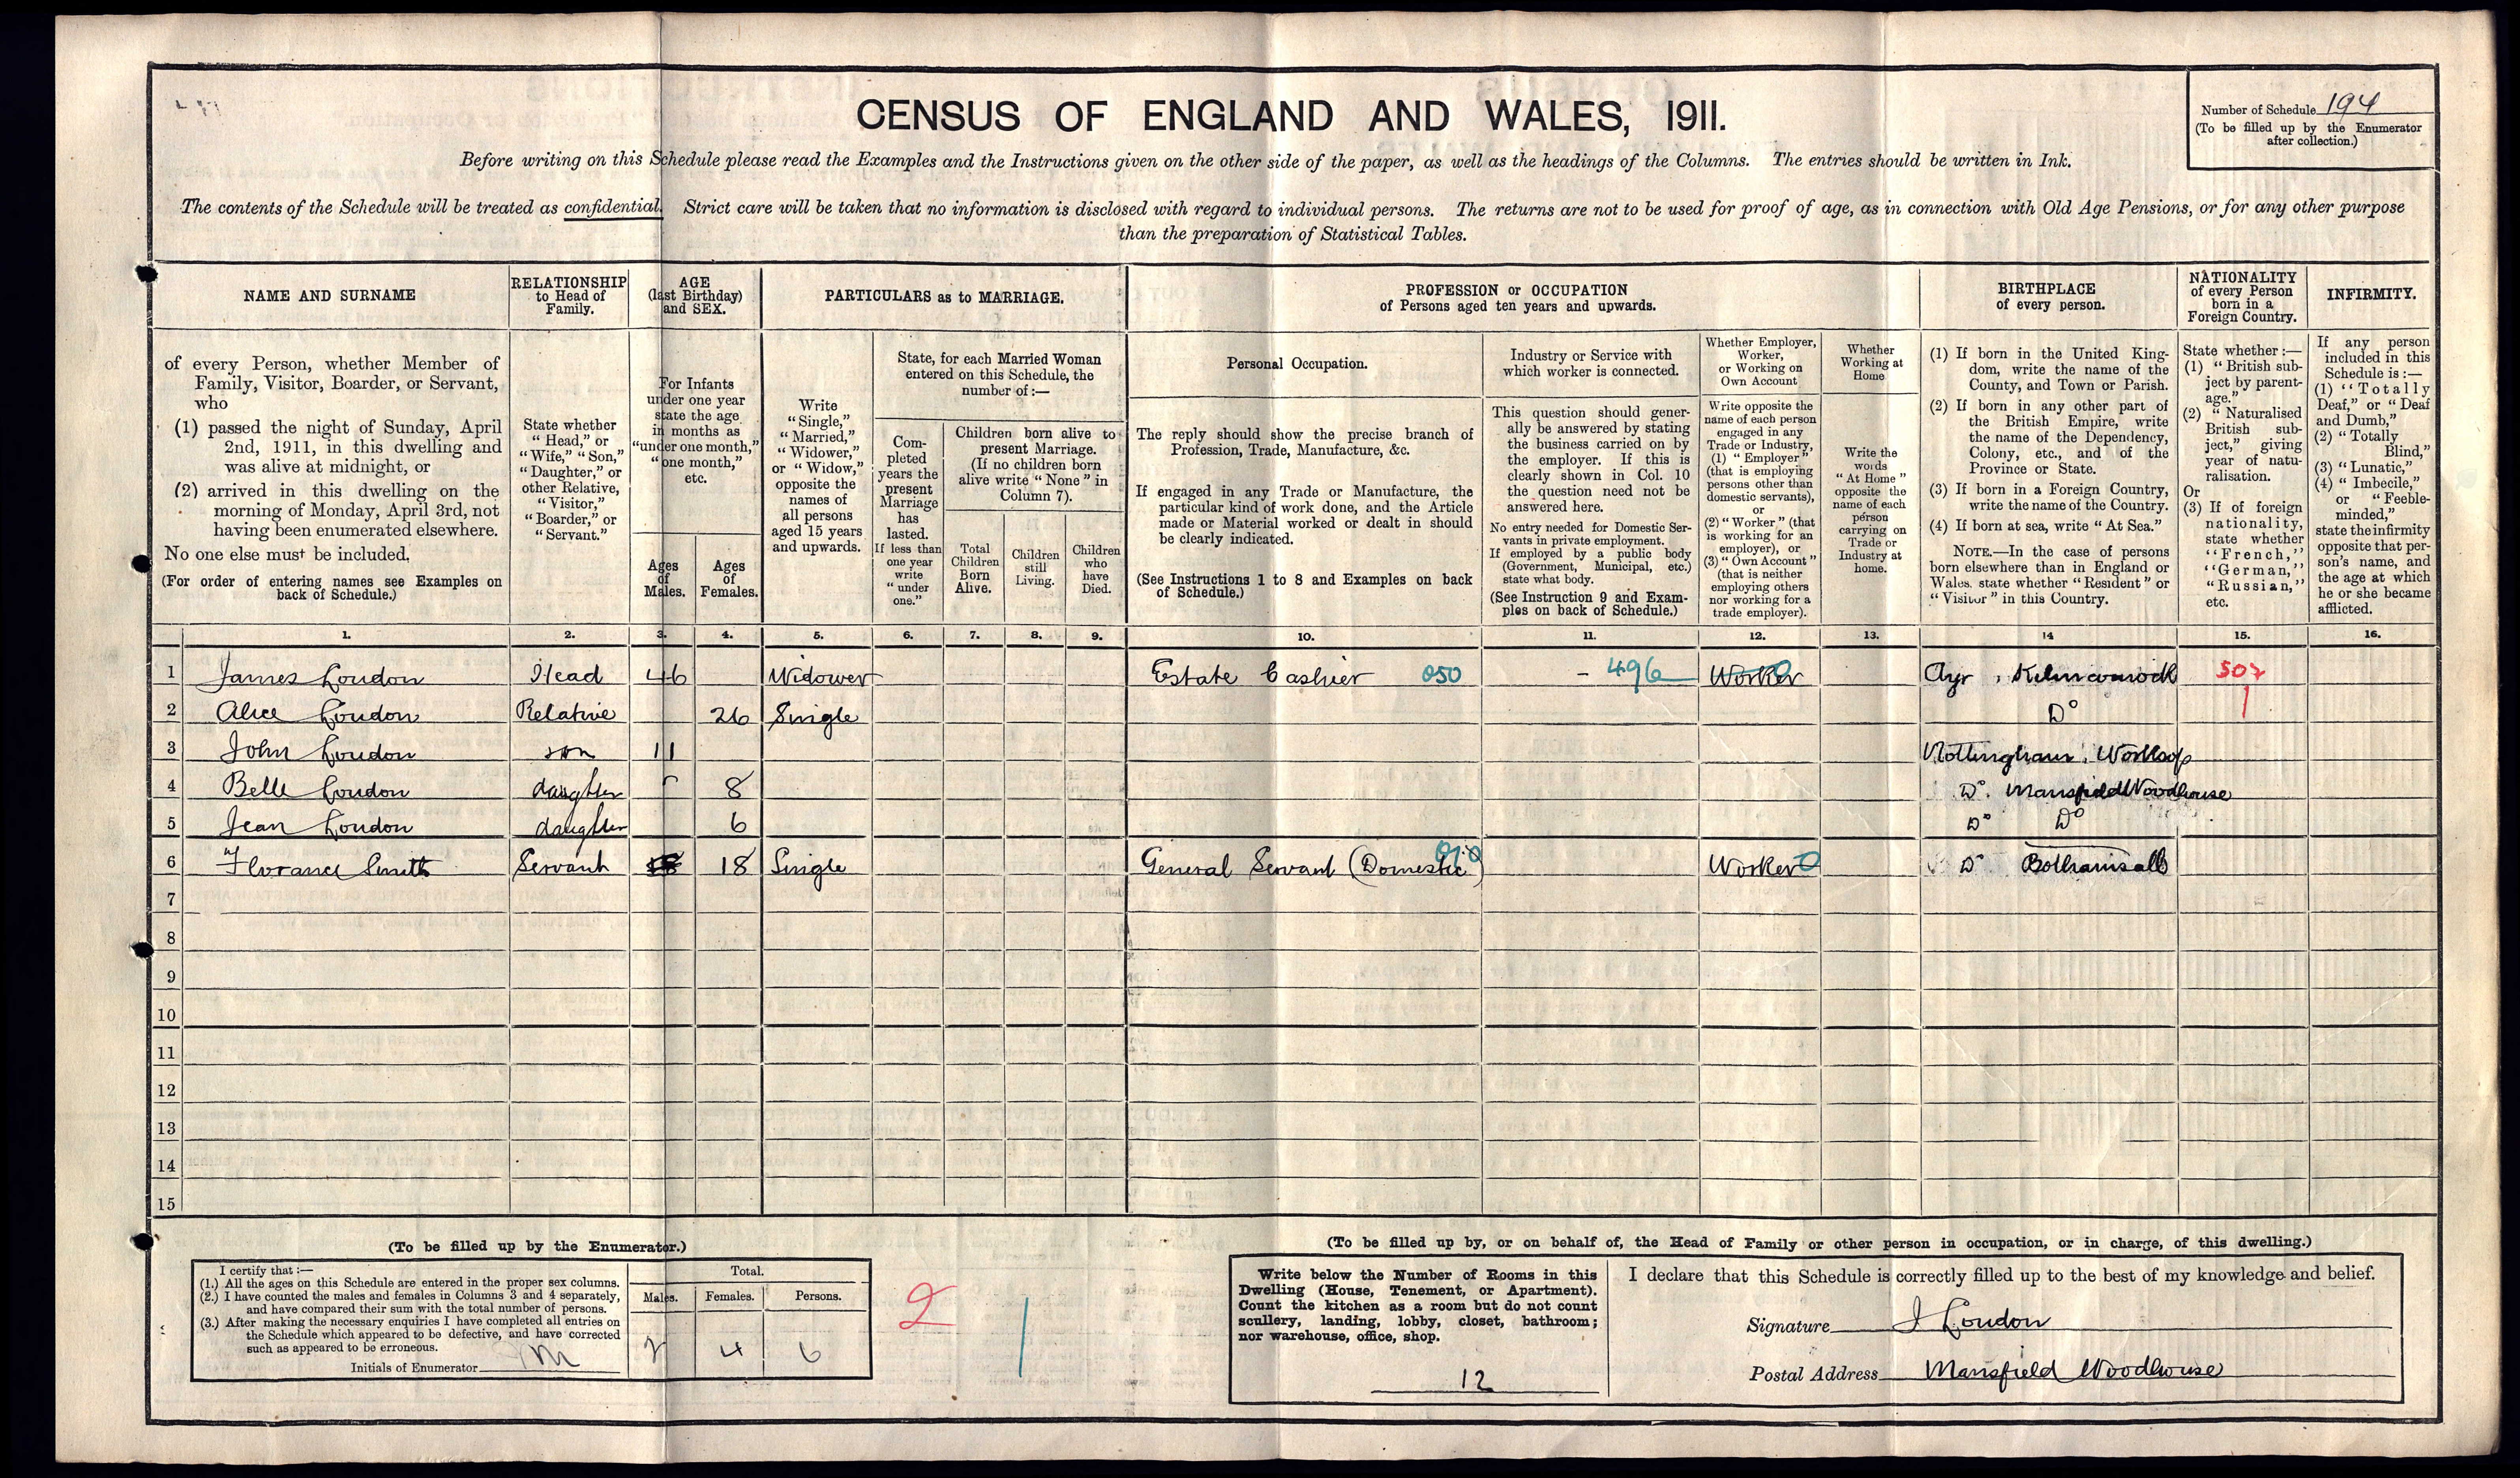 CENSUS OF ENGLAND AND WALES, 1911.
Number of Schedule 194
(To be filled up by the Enumerator after collection.)
Before writing on this Schedule please read the Examples and the Instructions given on the other side of the paper, as well as the headings of the Columns. The entries should be written in Ink.
The contents of the Schedule will be treated as confidential. Strict care will be taken that no information is disclosed with regard to individual persons. The returns are not to be used for proof of age, as in connection with Old Age Pensions, or for any other purpose
than the preparation of Statistical Tables.
NAME AND SURNAME
of every Person, whether Member of
Family, Visitor, Boarder, or Servant,
who
(1) passed the night of Sunday, April
2nd, 1911, in this dwelling and
was alive at midnight, or
(2) arrived in this dwelling on the
morning of Monday, April 3rd, not
having been enumerated elsewhere.
No one else must be included.
(For order of entering names see Examples on
back of Schedule.)
RELATIONSHIP
to Head of
Family.
State whether
"Head," or
"Wife," "Son,"
"Daughter," or
other Relative,
"Visitor,"
"Boarder," or
"Servant."
AGE
(last Birthday)
and SEX.
For Infants
under one year
state the age
in months as
"under one month,"
"one month,"
etc.
Ages
of
Males.
Ages
of
Females.
PARTICULARS as to MARRIAGE.
Write
"Single,"
"Married,"
"Widower,"
or "Widow,"
opposite the
names of
all persons
aged 15 years
and upwards.
State, for each Married Woman
entered on this Schedule, the
number of:—
Com-
pleted
years the
present
Marriage
has
lasted.
If less than
one year
write
"under
one."
Children born alive to
present Marriage.
(If no children born
alive write "None" in
Column 7).
Total
Children
Born
Alive.
Children
still
Living.
Children
who
have
Died.
PROFESSION or OCCUPATION
of Persons aged ten years and upwards.
Personal Occupation.
The reply should show the precise branch of
Profession, Trade, Manufacture, &c.
If engaged in any Trade or Manufacture, the
particular kind of work done, and the Article
made or Material worked or dealt in should
be clearly indicated.
(See Instructions 1 to 8 and Examples on back
of Schedule.)
Industry or Service with
which worker is connected.
This question should gener-
ally be answered by stating
the business carried on by
the employer. If this is
clearly shown in Col. 10
the question need not be
answered here.
No entry needed for Domestic Ser-
vants in private employment.
If employed by a public body
(Government, Municipal, etc.)
state what body.
(See Instruction 9 and Exam-
ples on back of Schedule.)
Whether Employer,
Worker,
or Working on
Own Account
Write opposite the
name of each person
engaged in any
Trade or Industry,
(1) "Employer"
(that is employing
persons other than
domestic servants),
or
(2) "Worker" (that
is working for an
employer), or
(3) "Own Account"
(that is neither
employing others
nor working for a
trade employer).
Whether
Working at
Home
Write the
words
"At Home"
opposite the
name of each
person
carrying on
Trade or
Industry at
home.
BIRTHPLACE
of every person.
(1) If born in the United King-
dom, write the name of the
County, and Town or Parish.
(2) If born in any other part of
the British Empire, write
the name of the Dependency,
Colony, etc., and of the
Province or State.
(3) If born in a Foreign Country,
write the name of the Country.
(4) If born at sea, write "At Sea."
NOTE.—In the case of persons
born elsewhere than in England or
Wales, state whether "Resident" or
"Visitor" in this Country.
NATIONALITY
of every Person
born in a
Foreign Country.
State whether:—
(1) "British sub-
ject by parent-
age."
(2) "Naturalised
British sub-
ject," giving
year of natu-
ralisation.
Or
(3) If of foreign
nationality,
state whether
"French,"
"German,"
"Russian,"
etc.
INFIRMITY.
If any person
included in this
Schedule is:—
(1) "Totally
Deaf," or "Deaf
and Dumb,"
(2) "Totally
Blind,"
(3) "Lunatic,"
(4) "Imbecile,"
or "Feeble-
minded,"
state the infirmity
opposite that per-
son's name, and
the age at which
he or she became
afflicted.
1. 2. 3. 4. 5. 6. 7. 8. 9. 10. 11. 12. 13. 14 15. 16.
1 James Loudon Head 46 Widower Estate Cashier 050 - 496 Worker 0 Ayr, Kilmarnock 507
2 Alice Loudon Relative 26 Single Do
3 John Loudon son 11 Nottingham, Worksop
4 Belle Loudon daughter 8 Do. Mansfield Woodhouse
5 Jean Loudon daughter 6 Do Do
6 Florance Smith Servant 18 Single General Servant (Domestic) 010 Worker 0 Do Bothamsall
7
8
9
10
11
12
13
14
15
(To be filled up by the Enumerator.)
I certify that:—
(1.) All the ages on this Schedule are entered in the proper sex columns.
(2.) I have counted the males and females in Columns 3 and 4 separately,
and have compared their sum with the total number of persons.
(3.) After making the necessary enquiries I have completed all entries on
the Schedule which appeared to be defective, and have corrected
such as appeared to be erroneous.
Initials of Enumerator
Total.
Males. Females. Persons.
2 4 6
2
1
(To be filled up by, or on behalf of, the Head of Family or other person in occupation, or in charge, of this dwelling.)
Write below the Number of Rooms in this
Dwelling (House, Tenement, or Apartment).
Count the kitchen as a room but do not count
scullery, landing, lobby, closet, bathroom;
nor warehouse, office, shop.
12
I declare that this Schedule is correctly filled up to the best of my knowledge and belief.
Signature J Loudon
Postal Address Mansfield Woodhouse